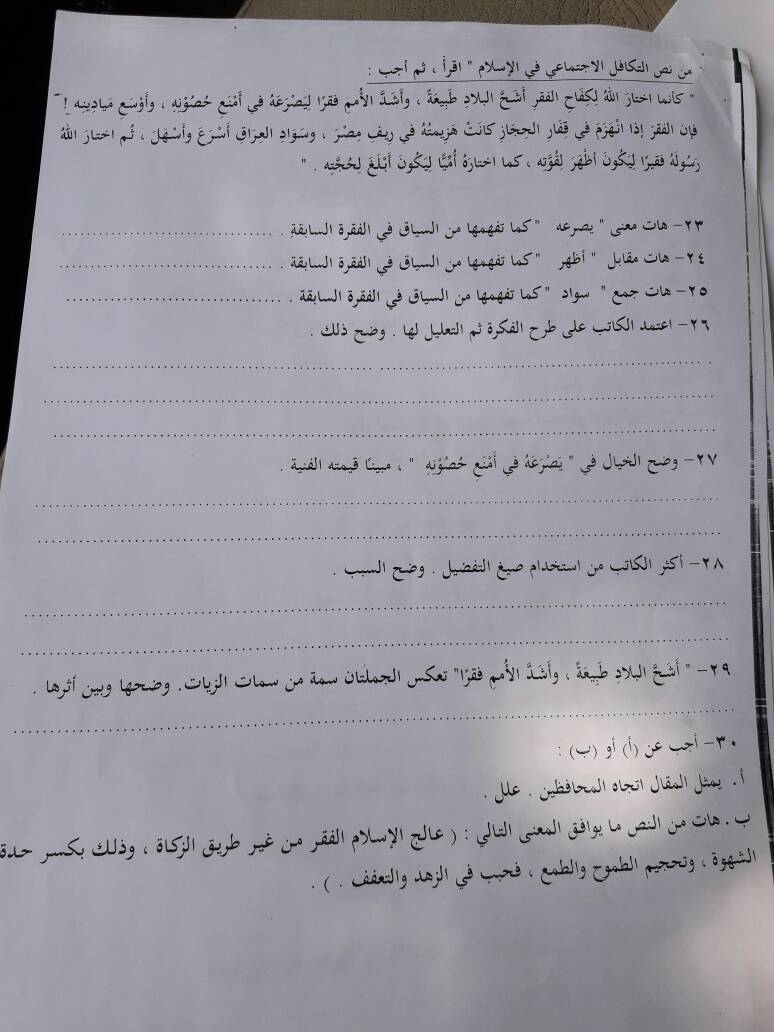 من نص التكافل الاجتماعي في الإسلام " اقرأ ، ثم أجب :
" كأنما اختارَ اللهُ لِكِفَاحِ الفقرِ أَشَحَّ البلادِ طَبِيعَةً ، وأَشَدَّ الأُممِ فقرًا لِيَصْرَعَهُ في أَمْنَعِ حُصُوْنِهِ ، وأَوْسَعِ مَيادِينِه !
فإن الفقرَ إذا انْهَزَمَ في قِفَارِ الحِجَازِ كانَتْ هَزِيمتُهُ في رِيفِ مِصْرَ ، وسَوَادِ العِرَاقِ أَسْرَعَ وأَسْهَلَ ، ثُم اختارَ اللهُ
رَسُولَهُ فقيرًا لِيَكُونَ أَظْهَرَ لِقُوَّتِه ، كما اختارَهُ أُمِّيًّا لِيَكُونَ أَبْلَغَ لِحُجَّتِه . "
٢٣- هات معنى " يصرعه " كما تفهمها من السياق في الفقرة السابقة .
٢٤- هات مقابل " أظهر " كما تفهمها من السياق في الفقرة السابقة .
٢٥- هات جمع " سواد " كما تفهمها من السياق في الفقرة السابقة .
٢٦- اعتمد الكاتب على طرح الفكرة ثم التعليل لها . وضح ذلك .
٢٧- وضح الخيال في " يَصْرَعَهُ في أَمْنَعِ حُصُوْنِهِ " ، مبينًا قيمته الفنية .
٢٨- أكثر الكاتب من استخدام صيغ التفضيل . وضح السبب .
٢٩- " أَشَحَّ البلادِ طَبِيعَةً ، وأَشَدَّ الأُممِ فقرًا" تعكس الجملتان سمة من سمات الزيات. وضحها وبين أثرها .
٣٠- أجب عن (أ) أو (ب) :
أ. يمثل المقال اتجاه المحافظين . علل .
ب. هات من النص ما يوافق المعنى التالي : ( عالج الإسلام الفقر من غير طريق الزكاة ، وذلك بكسر حدة
الشهوة ، وتحجيم الطموح والطمع ، فحبب في الزهد والتعفف . ) .